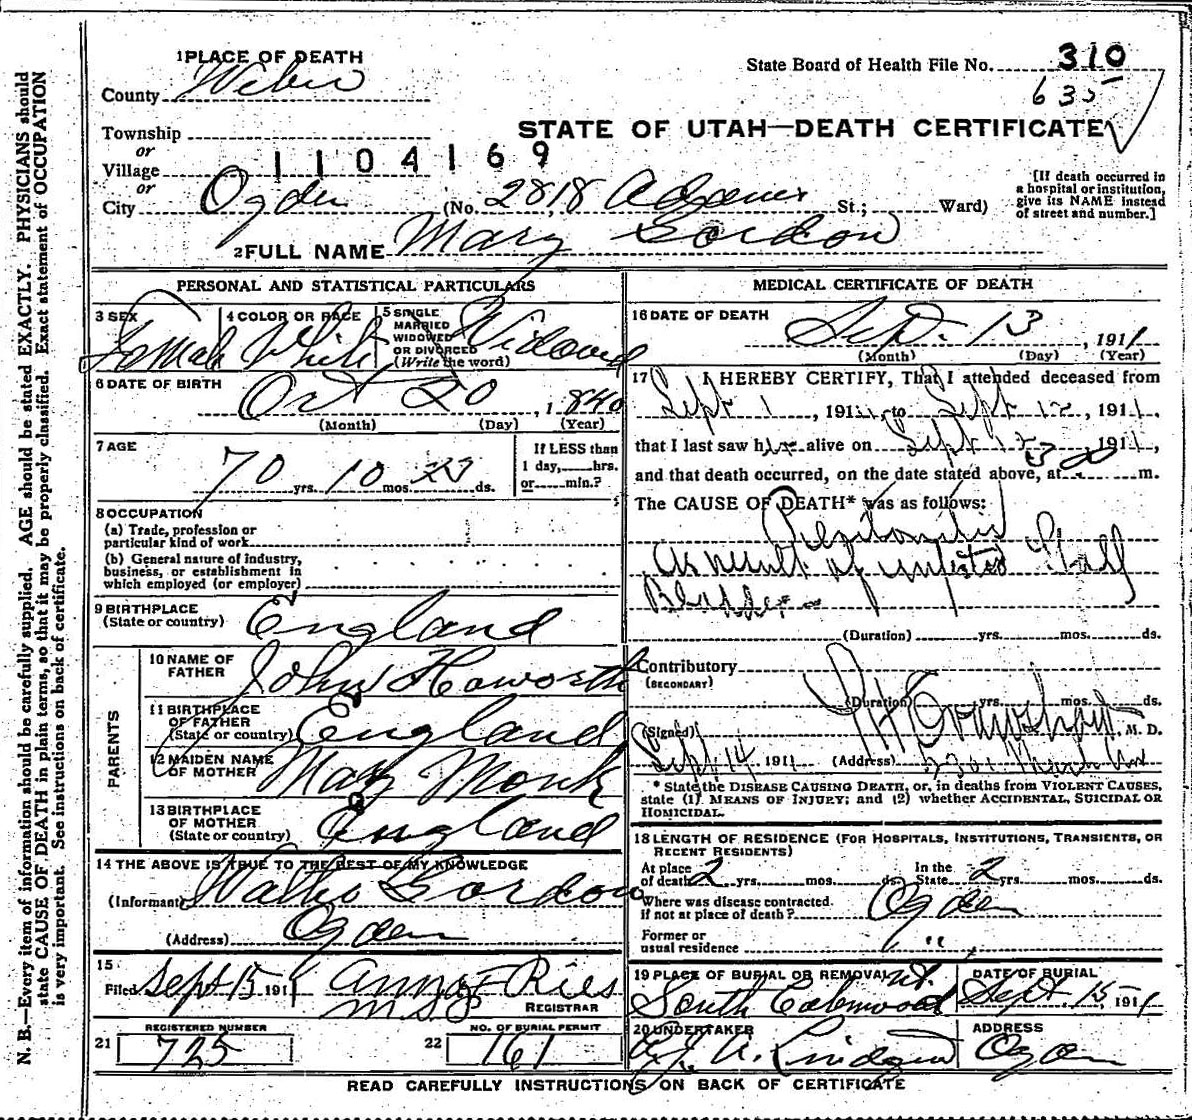 1 PLACE OF DEATH
County Weber
State Board of Health File No. 310
635
STATE OF UTAH—DEATH CERTIFICATE
Township
or
Village
1104169
or
City Ogden (No. 2818 Adams St.; Ward)
[If death occurred in
a hospital or institution,
give its NAME instead
of street and number.]
2 FULL NAME Mary Gordon
PERSONAL AND STATISTICAL PARTICULARS
3 SEX Female
4 COLOR OR RACE White
5 SINGLE
MARRIED
WIDOWED
OR DIVORCED
(Write the word) Widowed
6 DATE OF BIRTH Oct 20, 1840
(Month) (Day) (Year)
7 AGE 70 yrs. 10 mos. 23 ds.
If LESS than
1 day, hrs.
or min.?
8 OCCUPATION
(a) Trade, profession or
particular kind of work
(b) General nature of industry,
business, or establishment in
which employed (or employer)
9 BIRTHPLACE
(State or country) England
PARENTS
10 NAME OF
FATHER John Haworth
11 BIRTHPLACE
OF FATHER
(State or country) England
12 MAIDEN NAME
OF MOTHER Mary Monk
13 BIRTHPLACE
OF MOTHER
(State or country) England
14 THE ABOVE IS TRUE TO THE BEST OF MY KNOWLEDGE
(Informant) Gordon
(Address) Ogden
15
Filed Sept 15 1911 Anna F Ries
REGISTRAR
REGISTERED NUMBER
21 725
NO. OF BURIAL PERMIT
22 161
MEDICAL CERTIFICATE OF DEATH
16 DATE OF DEATH
Sept. 13, 1911
(Month) (Day) (Year)
17 I HEREBY CERTIFY, That I attended deceased from
Sept 1, 1911, to Sept 12, 1911,
that I last saw her alive on Sept 12, 1911,
and that death occurred, on the date stated above, at 3 00 m.
The CAUSE OF DEATH* was as follows:
Peritonitis
as result of infected Gall
Bladder
(Duration) yrs. mos. ds.
Contributory
(SECONDARY)
(Duration) yrs. mos. ds.
(Signed) M. D.
Sept. 14 1911 (Address)
* State the DISEASE CAUSING DEATH, or, in deaths from VIOLENT CAUSES,
state (1) MEANS OF INJURY; and (2) whether ACCIDENTAL, SUICIDAL OR
HOMICIDAL.
18 LENGTH OF RESIDENCE (FOR HOSPITALS, INSTITUTIONS, TRANSIENTS, OR
RECENT RESIDENTS)
At place
of death 2 yrs. mos. ds.
In the
State 2 yrs. mos. ds.
Where was disease contracted
if not at place of death? Ogden
Former or
usual residence "
19 PLACE OF BURIAL OR REMOVAL
South Cottonwood Ut.
DATE OF BURIAL
Sept 15, 1911
20 UNDERTAKER
A. Lindquist
ADDRESS
Ogden
READ CAREFULLY INSTRUCTIONS ON BACK OF CERTIFICATE
N. B.—Every item of information should be carefully supplied. AGE should be stated EXACTLY. PHYSICIANS should
state CAUSE OF DEATH in plain terms, so that it may be properly classified. Exact statement of OCCUPATION
is very important. See instructions on back of certificate.